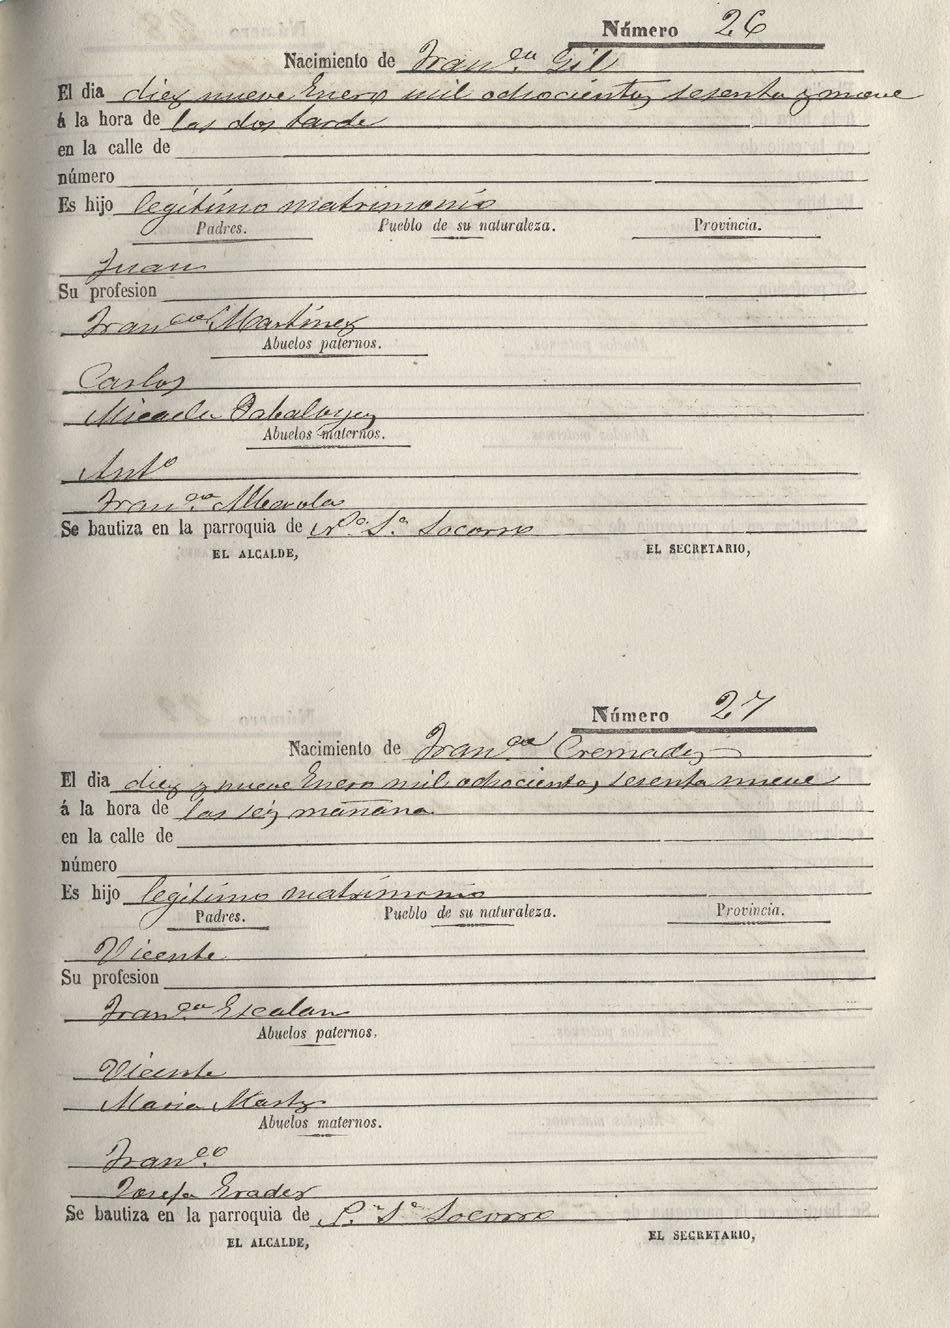 Número 26
Nacimiento de Fran.ca Gil
El dia diez nueve Enero mil ochocientos sesenta y nueve
á la hora de las dos tarde
en la calle de
número
Es hijo legítimo matrimonio
Padres. Pueblo de su naturaleza. Provincia.
Juan
Su profesion
Fran.ca Martinez
Abuelos paternos.
Carlos
Micaela
Abuelos maternos.
Ant.o
Fran.ca Alberola
Se bautiza en la parroquia de N.a S.a Socorro
EL ALCALDE, EL SECRETARIO,
Número 27
Nacimiento de Fran.ca Cremades
El dia diez y nueve Enero mil ochocientos sesenta nueve
á la hora de las seis mañana
en la calle de
número
Es hijo legítimo matrimonio
Padres. Pueblo de su naturaleza. Provincia.
Vicente
Su profesion
Fran.ca Escolan
Abuelos paternos.
Vicente
Maria Martz
Abuelos maternos.
Fran.co
Josefa
Se bautiza en la parroquia de S.a Socorro
EL ALCALDE, EL SECRETARIO,